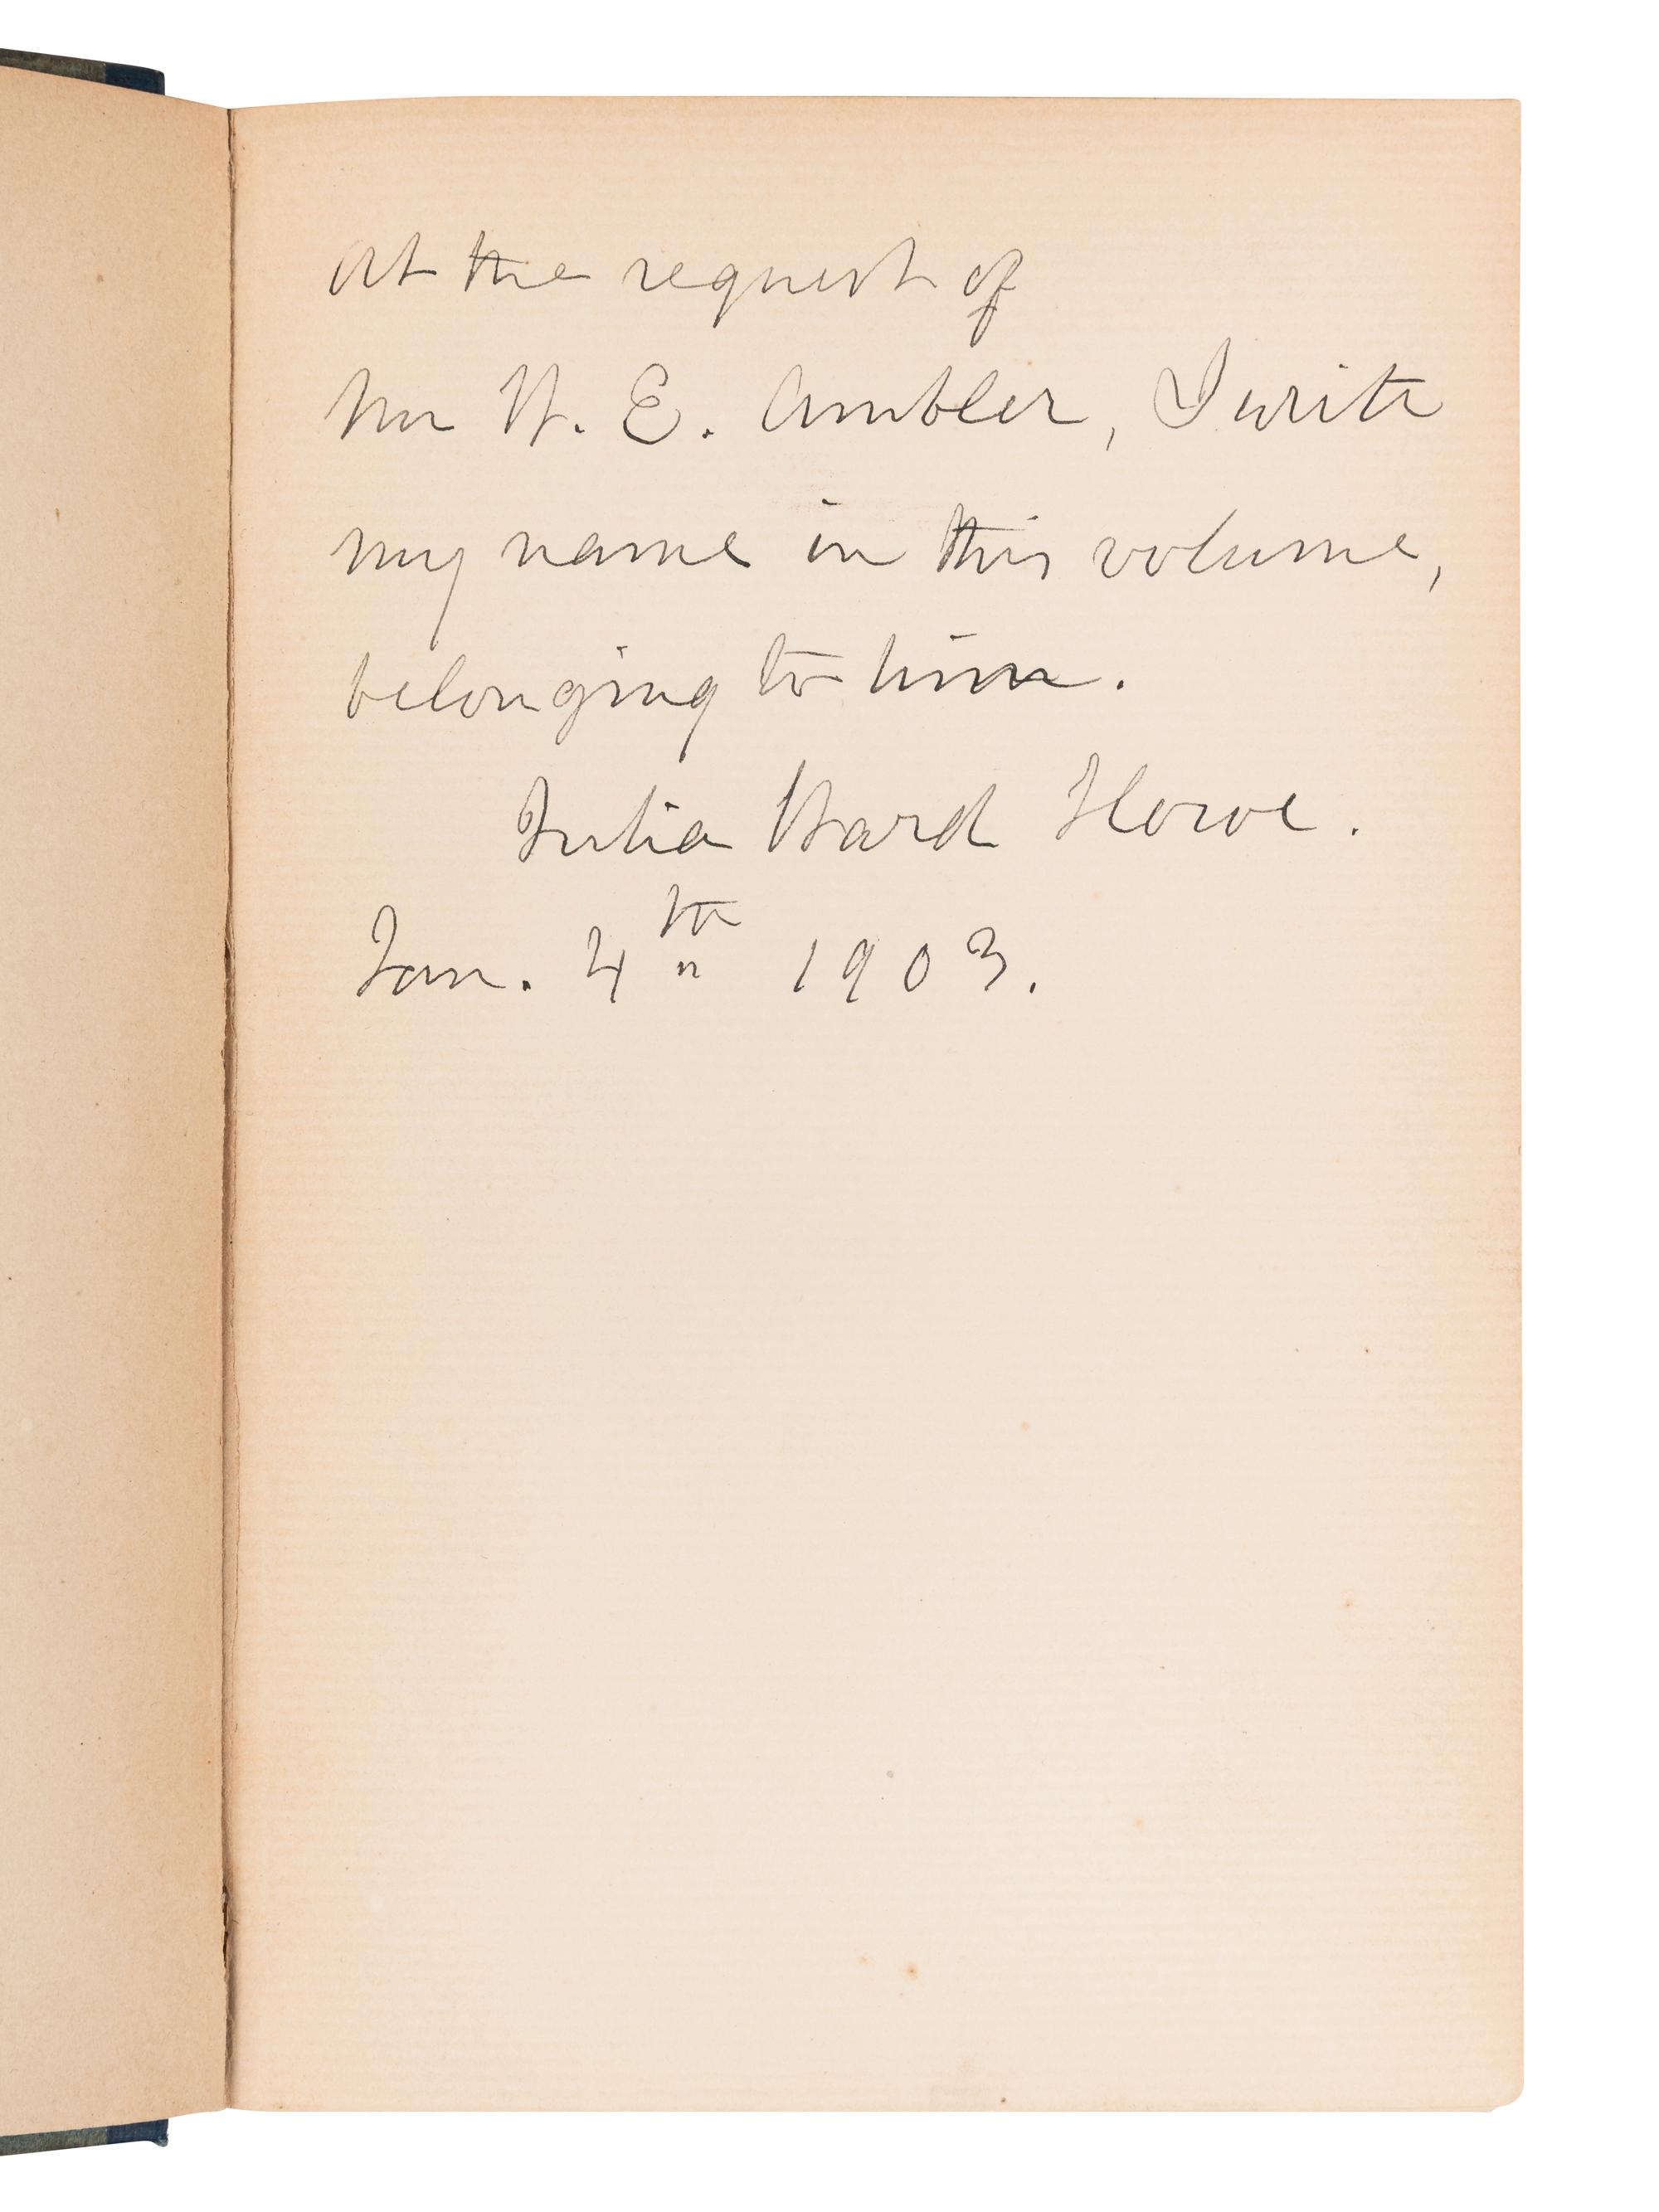 At the request of
Mr W. E. Ambler, I write
my name in this volume,
belonging to him.
Julia Ward Howe.
Jan. 4th 1903.